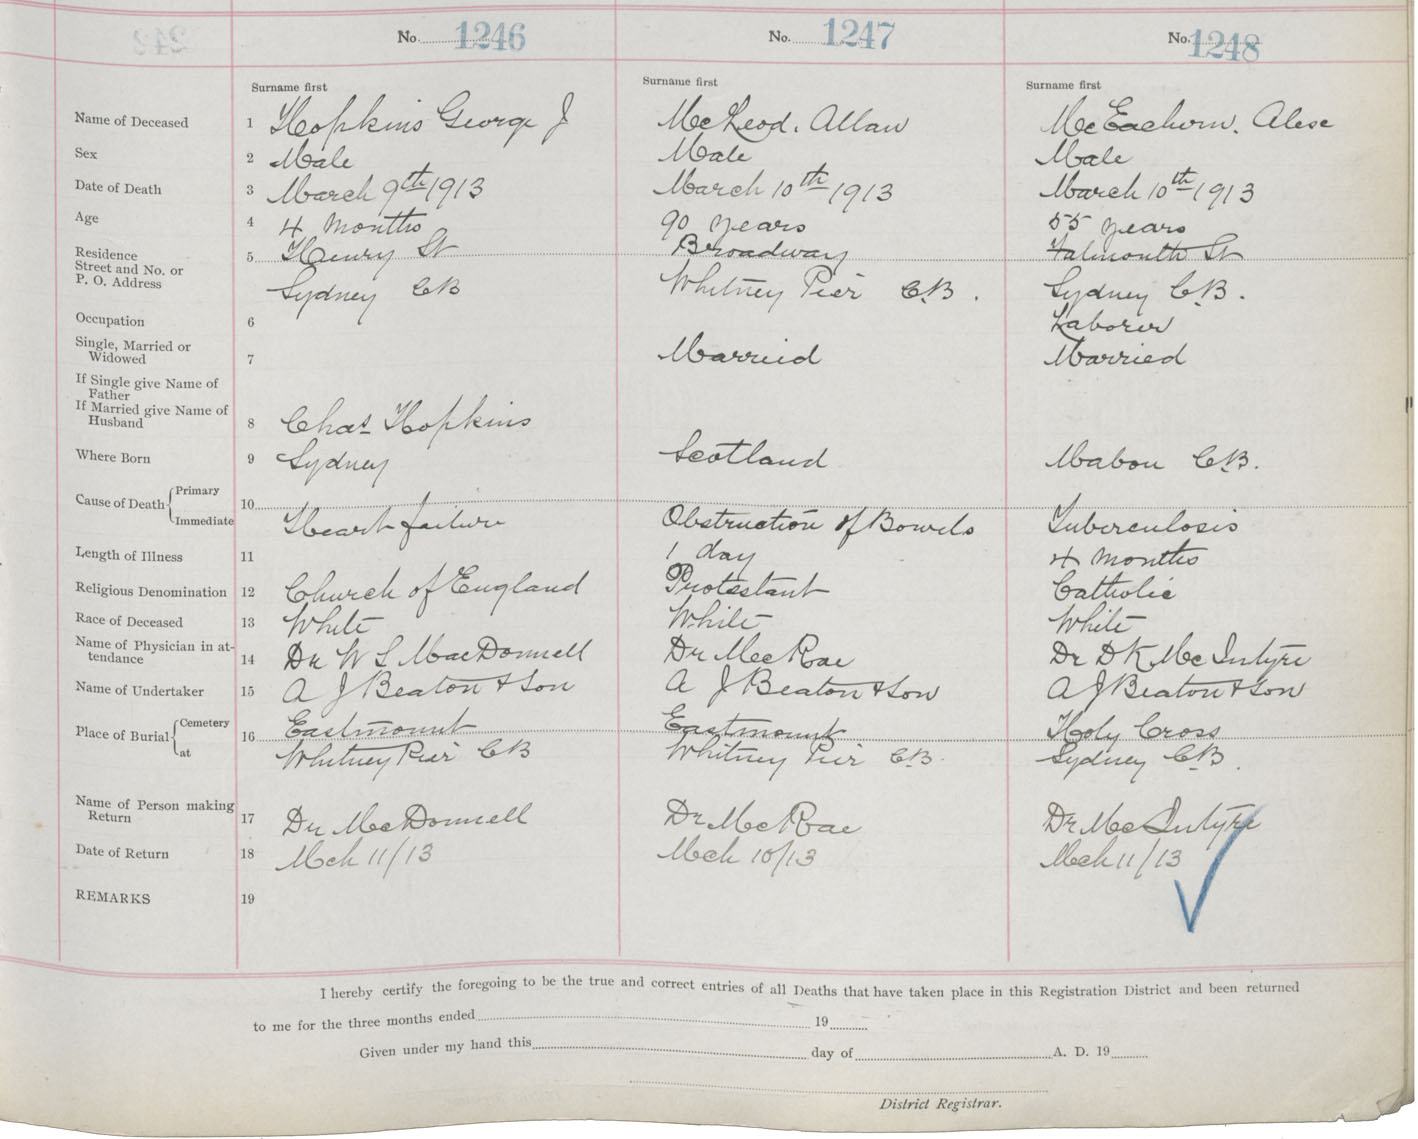 No. 1246 No. 1247 No. 1248
Surname first Surname first Surname first
Name of Deceased 1 Hopkins George J McLeod. Allan McEachern. Alese
Sex 2 Male Male Male
Date of Death 3 March 9th 1913 March 10th 1913 March 10th 1913
Age 4 4 months 90 years 55 years
Residence 5 Henry St Broadway Falmouth St
Street and No. or
P. O. Address Sydney CB Whitney Pier C.B. Sydney C.B.
Occupation 6 Laborer
Single, Married or
Widowed 7 Married Married
If Single give Name of
Father
If Married give Name of
Husband 8 Chas Hopkins
Where Born 9 Sydney Scotland Mabou C.B.
Cause of Death Primary 10
Immediate Heart failure Obstruction of Bowels Tuberculosis
Length of Illness 11 1 day 4 months
Religious Denomination 12 Church of England Protestant Catholic
Race of Deceased 13 White White White
Name of Physician in at-
tendance 14 Dr W S MacDonnell Dr McRae Dr D K McIntyre
Name of Undertaker 15 A J Beaton & Son A J Beaton & Son A J Beaton & Son
Place of Burial Cemetery 16 Eastmount Eastmount Holy Cross
at Whitney Pier CB Whitney Pier C.B. Sydney C.B.
Name of Person making
Return 17 Dr McDonnell Dr McRae Dr McIntyre
Date of Return 18 Mch 11/13 Mch 10/13 Mch 11/13
REMARKS 19
I hereby certify the foregoing to be the true and correct entries of all Deaths that have taken place in this Registration District and been returned
to me for the three months ended 19
Given under my hand this day of A. D. 19
District Registrar.